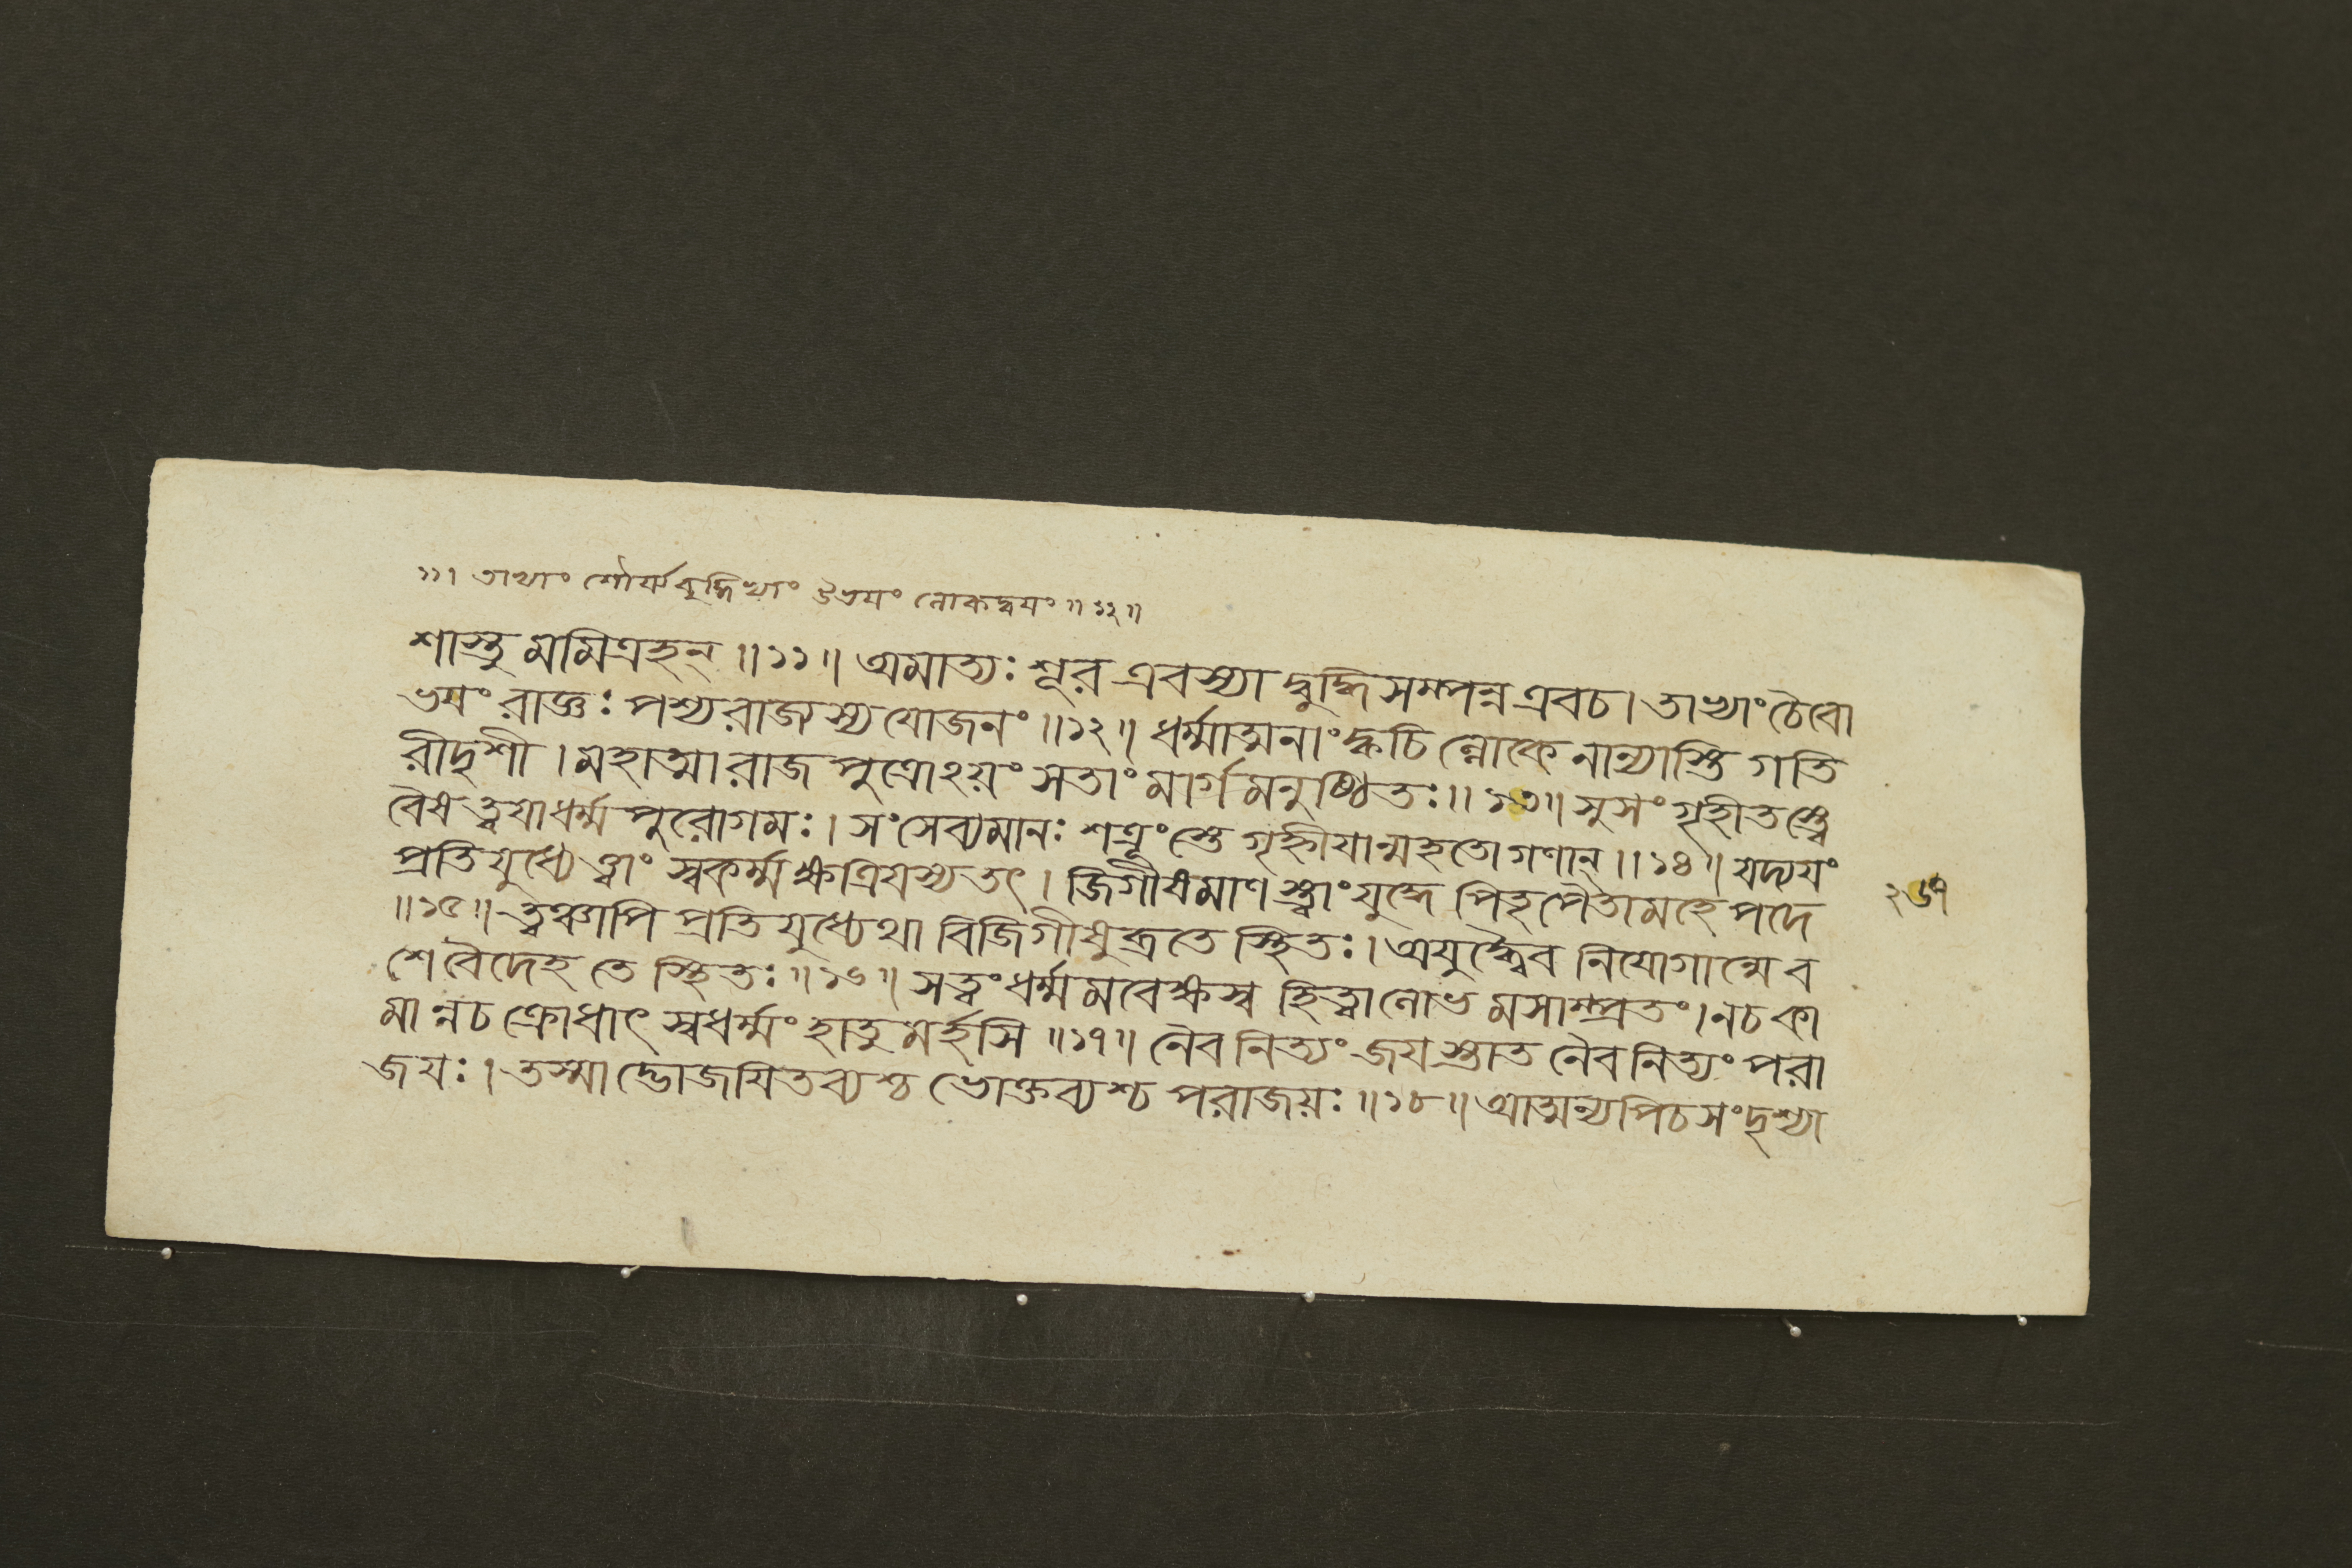 ১১। তাভ্যাং শৌর্য্যবুদ্ধিভ্যাং উভয়ং লোকদ্বয়ং ॥ ১২ ॥
শাস্তু মমিত্রহন্ ॥ ১১ ॥ অমাত্যঃ শূর এবস্যা দ্বুদ্ধিসম্পন্ন এবচ। তাভ্যাং চৈবো
ভযং রাজ্ঞঃ পশ্যরাজ্যস্য যোজনং ॥ ১২ ॥ ধর্ম্মাত্মনাং ক্বচি ল্লোকে নান্যাস্তি গতি
রীদৃশী। মহাত্মা রাজ পুত্রোঽয়ং সতাং মার্গ মনুষ্ঠিতঃ ॥ ১৩ ॥ সুসং গৃহীতস্ত্বে
বৈষ ত্বযা ধর্ম্ম পুরোগমঃ। সংসেব্যমানঃ শত্রূংস্তে গৃহ্নীযান্মহতো গণান্ ॥ ১৪ ॥ যদ্যযং
প্রতি যুধ্যেত্ত্বাং স্বকর্ম্ম ক্ষত্রিযস্য তৎ। জিগীষমাণ স্ত্বাং যুদ্ধে পিতৃপৈতামহে পদে
॥ ১৫ ॥ ত্বঞ্চাপি প্রতি যুধ্যেথা বিজিগীষুব্রতে স্থিতঃ। অযুদ্ধ্বৈব নিযোগান্মে ব
শে বৈদেহ তে স্থিতঃ ॥ ১৬ ॥ সত্বং ধর্ম্ম মবেক্ষস্ব হিত্বা লোভ মসাম্প্রতং। নচ কা
মা ন্নচ ক্রোধাৎ স্বধর্ম্মং হাতু মর্হসি ॥ ১৭ ॥ নৈব নিত্যং জযস্তাত নৈব নিত্যং পরা
জযঃ। তস্মা দ্ভোজযিতব্যশ্চ ভোক্তব্যশ্চ পরাজয়ঃ ॥ ১৮ ॥ আত্মন্যপিচ সংদৃশ্যা
২৬৭